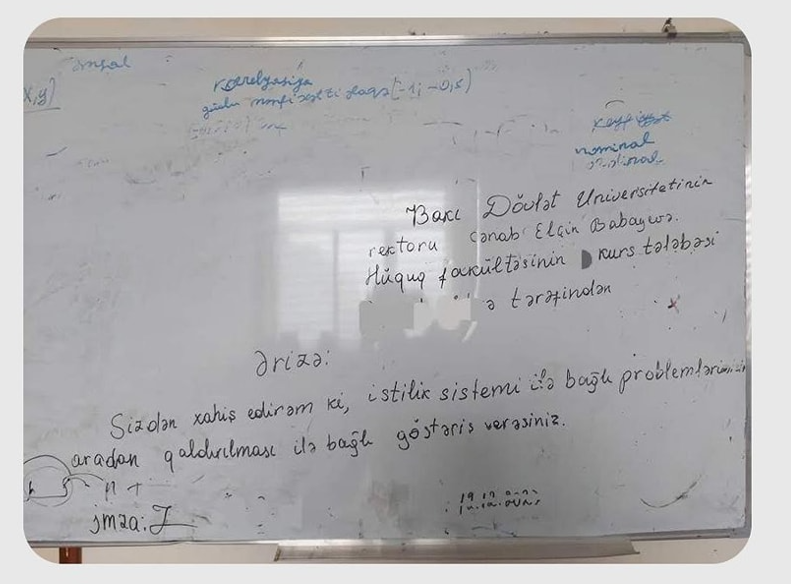 əmsal
x,y)
korrelyasiya
güclü mənfi xətti əlaqə [-1; -0,5)
nominal
ordinal
Bakı Dövlət Universitetinin
rektoru cənab Elçin Babayevə.
Hüquq fakültəsinin kurs tələbəsi
ə tərəfindən
Ərizə:
Sizdən xahiş edirəm ki, istilik sistemi ilə bağlı problemlərimizin
aradan qaldırılması ilə bağlı göstəriş verəsiniz.
imza: